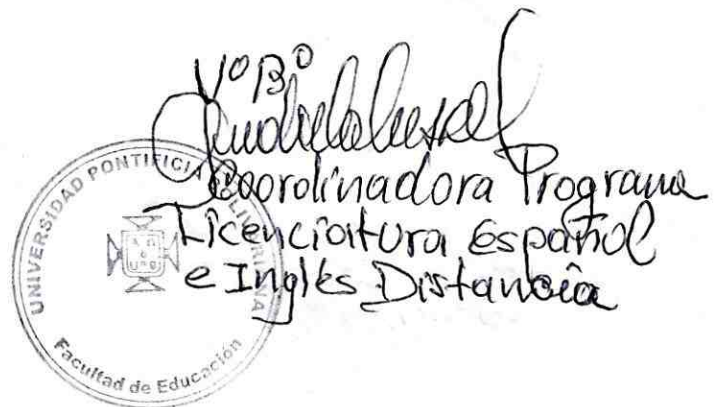 VºBº
Coordinadora Programa
Licenciatura Español
e Inglés Distancia
UNIVERSIDAD PONTIFICIA BOLIVARIANA
Facultad de Educación